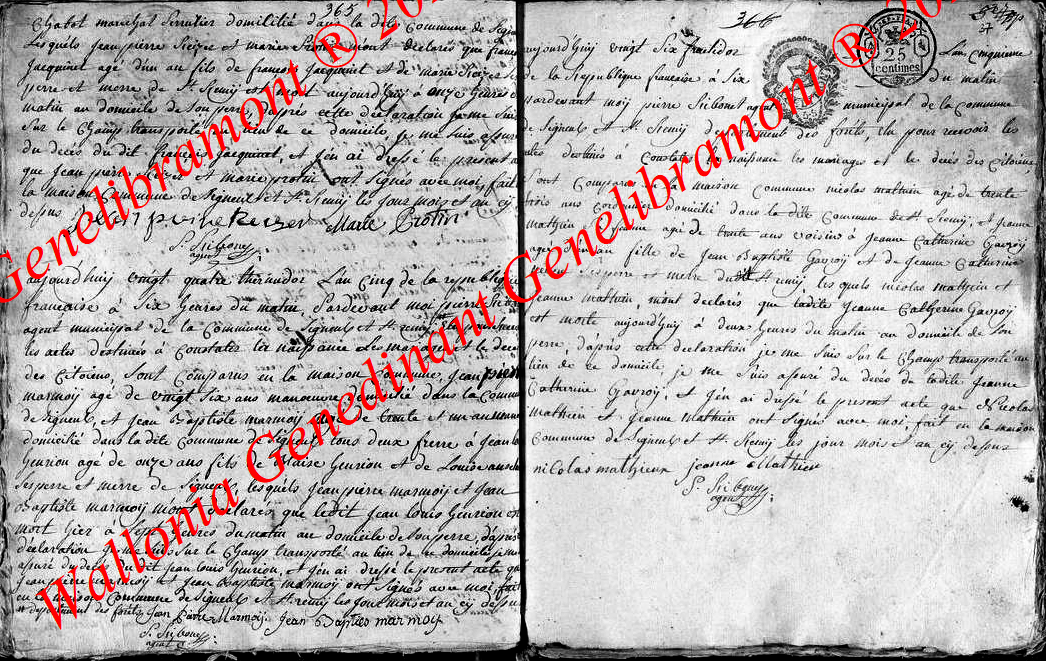 365
Chabot marechal serrurier domicilié dans la dite Commune de
Lesquels jean pierre et marie mont declarés que
jacquinet agé d'un an fils de françois jacquinet et de marie
perre et merre de St Remij est mort aujourd'huij à onze heures
matin au domicile de son perre, d'après cette déclaration je me suis
Sur le Champ transporté au lieu de ce domicile, je me suis
du decès du dit françois jacquinet, et j'en ai dressé le présent
que jean pierre et marie protin ont signés avec moi, fait
la maison Commune de Signeul et St Remij les jour mois et an cij
dessus
Marie Protin
P. Sibonej
agent
aujourd'huij vingt quatre thermidor L'an Cinq de la republique
française à Six heures du matin, Pardevant moi pierre
agent municipal de la Commune de Signeul et St remij
les actes destinés à Constater la naissance Les mariages et le decès
des Citoiens, sont Comparus en la maison Commune, jean pierre
marmoij agé de vingt six ans manoeuvre domicilié dans la Commune
de Signeul, et jean Baptiste marmoij de trente et un ans
domicilié dans la dite Commune de Signeul tous deux frerre à jean
Genrion agé de onze ans fils de Genrion et de Louise
ses perre et merre de Signeul, lesquels jean pierre marmoij et jean
Baptiste marmoij mont declarés que ledit jean Louis Genrion est
mort hier à sept heures du matin au domicile de son perre, d'après
déclaration je me suis Sur le Champ transporté au lieu de ce domicile je me
assuré du decès du dit jean Louis Genrion, et j'en ai dressé le present acte que
jean pierre marmoij et jean Baptiste marmoij ont signés avec moi, fait
en la maison Commune de Signeul et St. remij les jour mois et an cij dessus
departement des forêts Jean Pierre Marmoy. jean Baptiste marmoy
P. Sibonej
agent
366
27
25
centimes
aujourd'huij vingt Six fructidor L'an Cinquieme
de la Republique française à Six du matin
pardevant moij pierre Sibonet agent municipal de la Commune
de Signeul et St. Remij departement des forêts, élu pour recevoir les
actes destinés à Constater la naissance les mariages et le decès des Citoiens,
Sont Comparus en la maison Commune nicolas mathieu agé de trente
trois ans Cordonnier domicilié dans la dite Commune de St Remij, et jeanne
mathieu agé de trente ans voisins à jeanne Catherine Gavroij
agée d'un an fille de jean Baptiste Gavroij et de jeanne Catherine
perre et merre du dit St remij, les quels nicolas mathieu et
jeanne mathieu mont declarés que ladite jeanne Catherine Gavroij
est morte aujourd'huij à deux heures du matin au domicile de son
perre, d'après cette declaration je me Suis Sur le Champ transporté au
lieu de ce domicile, je me Suis assuré du decès de ladite jeanne
Catherine Gavroij, et j'en ai dressé le present acte que Nicolas
Mathieu et jeanne mathieu ont Signés avec moi, fait en la maison
Commune de Signeul et St. Remij les jour mois et an cij dessus
nicolas mathieux jeanne Mathieu
P. Sibonej
agent
Wallonia Genedinant Genelibramont ® 20
Genelibramont ® 20